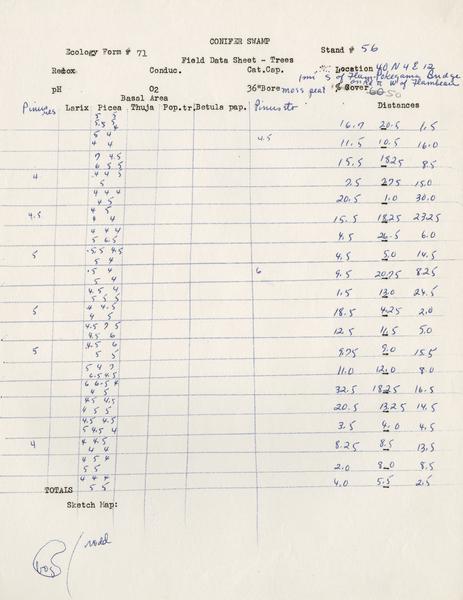 CONIFER SWAMP
Ecology Form # 71
Stand # 56
Field Data Sheet - Trees
Redox Conduc. Cat.Cap. Location 40 N 4 E 12
1 mi S of Flag-Pokegama Bridge
on rd W of Flambeau
pH O2 36"Bore moss peat % Cover 50
Basal Area
Pinus res Larix Picea Thuja Pop.tr. Betula pap. Pinus str Distances
5 5
5.5 5 4 16.7 20.5 1.5
5 4 4.5
4 4 11.5 10.5 16.0
7 4.5
6 5.5 15.5 18.25 8.5
4 4 4 5
5 7.5 2.75 15.0
4 4 4
4 5 20.5 1.0 30.0
4.5 4 5
4 4 15.5 18.25 23.25
4 4 4
5 6.5 4.5 26.5 6.0
5 5.5 4.5
5 4 4.5 5.0 14.5
5 4 6
5 4 9.5 20.75 8.25
4.5 4
5 5 5 1.5 13.0 24.5
5 4 4.5
4 5 18.5 4.25 2.0
4.5 7 5
4.5 6 12.5 11.5 5.0
5 4.5 6
5 5 8.75 9.0 15.5
5 4 7
6.5 4.5 11.0 12.0 8.0
6 6.5 4
4 5 32.5 18.25 16.5
4.5 4.5
4 5 5 20.5 13.25 14.5
4.5 4.5
5 4.5 4 3.5 4.0 4.5
4 4 4.5
4 4 8.25 8.5 13.5
4 5 4
5 5 2.0 8.0 8.5
4 4 4
TOTALS 5 5 4.0 5.5 2.5
Sketch Map:
bog / road